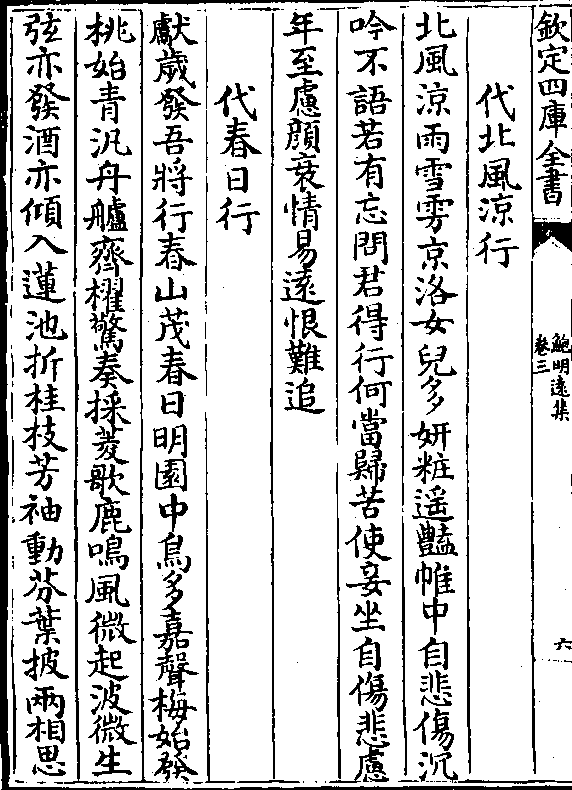 欽定四庫全書
鮑明遠集
卷三
六
代北風涼行
北風涼雨雪雱京洛女兒多妍粧遥豔帷中自悲傷沉
吟不語若有忘問君得行何當歸苦使妾坐自傷悲慮
年至慮顔衰情易遠恨難追
代春日行
獻歲發吾將行春山茂春日明園中鳥多嘉聲梅始發
桃始青汎舟艫齊櫂驚奏採菱歌鹿鳴風微起波微生
弦亦發酒亦傾入蓮池折桂枝芳袖動芬葉披兩相思